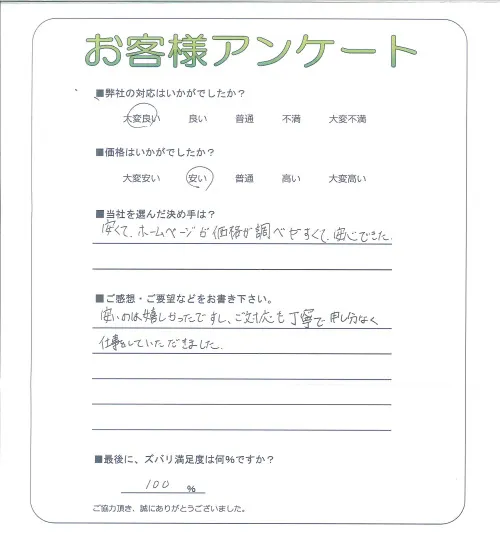 お客様アンケート
■弊社の対応はいかがでしたか？
大変良い 良い 普通 不満 大変不満
■価格はいかがでしたか？
大変安い 安い 普通 高い 大変高い
■当社を選んだ決め手は？
安くて、ホームページが価格が調べやすくて、安心できた。
■ご感想・ご要望などをお書き下さい。
安いのは嬉しかったですし、ご対応も丁寧で申し分なく
仕事をしていただきました。
■最後に、ズバリ満足度は何%ですか？
100 %
ご協力頂き、誠にありがとうございました。